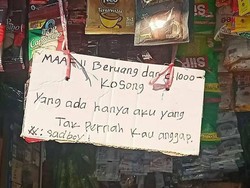 MAAF!! Beruang dan 1000-
Kosong
Yang ada hanya aku yang
Tak Pernah Kau anggap.